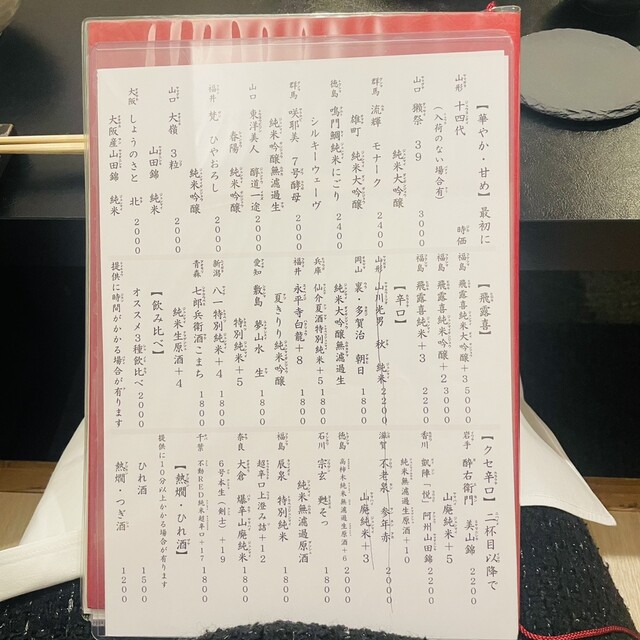 【華やか・甘め】最初に
山形 十四代 時価
(入荷のない場合有)
山口 獺祭 39 3000
純米大吟醸
群馬 流輝 モナーク 2400
雄町 純米大吟醸
徳島 鳴門鯛純米にごり 2400
シルキーウェーヴ
群馬 咲耶美 7号酵母 2000
純米吟醸無濾過生
山口 東洋美人 醇道一途 2000
春陽 純米吟醸
福井 梵 ひやおろし 2000
純米吟醸
山口 大嶺 3粒 2000
山田錦 純米
大阪 しょうのさと 北 2000
大阪産山田錦 純米
【飛露喜】
福島 飛露喜純米大吟醸+3 5000
福島 飛露喜純米吟醸+2 3000
福島 飛露喜純米+3 2200
【辛口】
山形 山川光男 秋 純米 2200
岡山 裏・多賀治 朝日 1800
純米大吟醸無濾過生
兵庫 仙介夏酒特別純米+5 1800
福井 永平寺白龍+8 1800
夏きりり純米吟醸
愛知 敷島 夢山水 生 1800
特別純米+5
新潟 八一特別純米+4 1800
青森 七郎兵衛酒こまち 1800
純米生原酒+4
【飲み比べ】
オススメ3種飲比べ 2000
提供に時間がかかる場合が有ります
【クセ辛口】二杯目以降で
岩手 酔右衛門 美山錦 2200
山廃純米+5
香川 凱陣「悦」阿州山田錦 2200
純米無濾過生原酒+10
滋賀 不老泉 参年赤 2000
山廃純米+3
徳島 高柿木純米無濾過生原酒+6 2000
石川 宗玄 甦そっ 1800
純米無濾過原酒
福島 辰泉 特別純米 1800
超辛口上澄み詰+12
奈良 大倉 爆辛山廃純米 1800
6号本生(剣士)+19
千葉 不動RED純米超辛口+17 1800
【熱燗・ひれ酒】
提供に10分以上かかる場合が有ります
ひれ酒 1500
熱燗・つぎ酒 1200